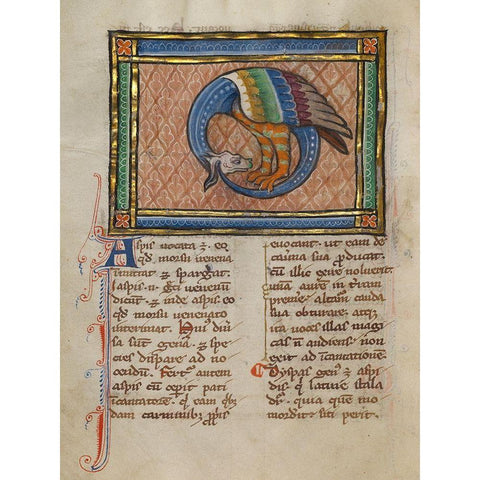 Aspis vocata ꝫ eo
qd̄ morsu venena
inmittat ꝫ spargat.
Iaspis .n. Gͥ venenū
dicūt ꝫ inde aspis eo
qd̄ morsu venenato
interimat. Huiꝰ diū͛
sa sūt gen͛a ꝫ spe
cies dispare ad no
cendū. Fert᷑ autem
aspis cū ceperit pati
incantatorē q̄ eam
dam carminibꝫ ꝓpͥis
evocant. ut eam de
cauna sua ꝓducat.
cū illic exire noluerit
unā aurē in t͛ram
premit. alt͛am cauda
sua obturare. atqꝫ
ita voces illas magi
cas n̄ audiens. non
exit ad incantationē.
Dyspas genꝰ ē aspi
dis. q̄ latine situla
dr̄. quia quē mo
mordit siti perit.